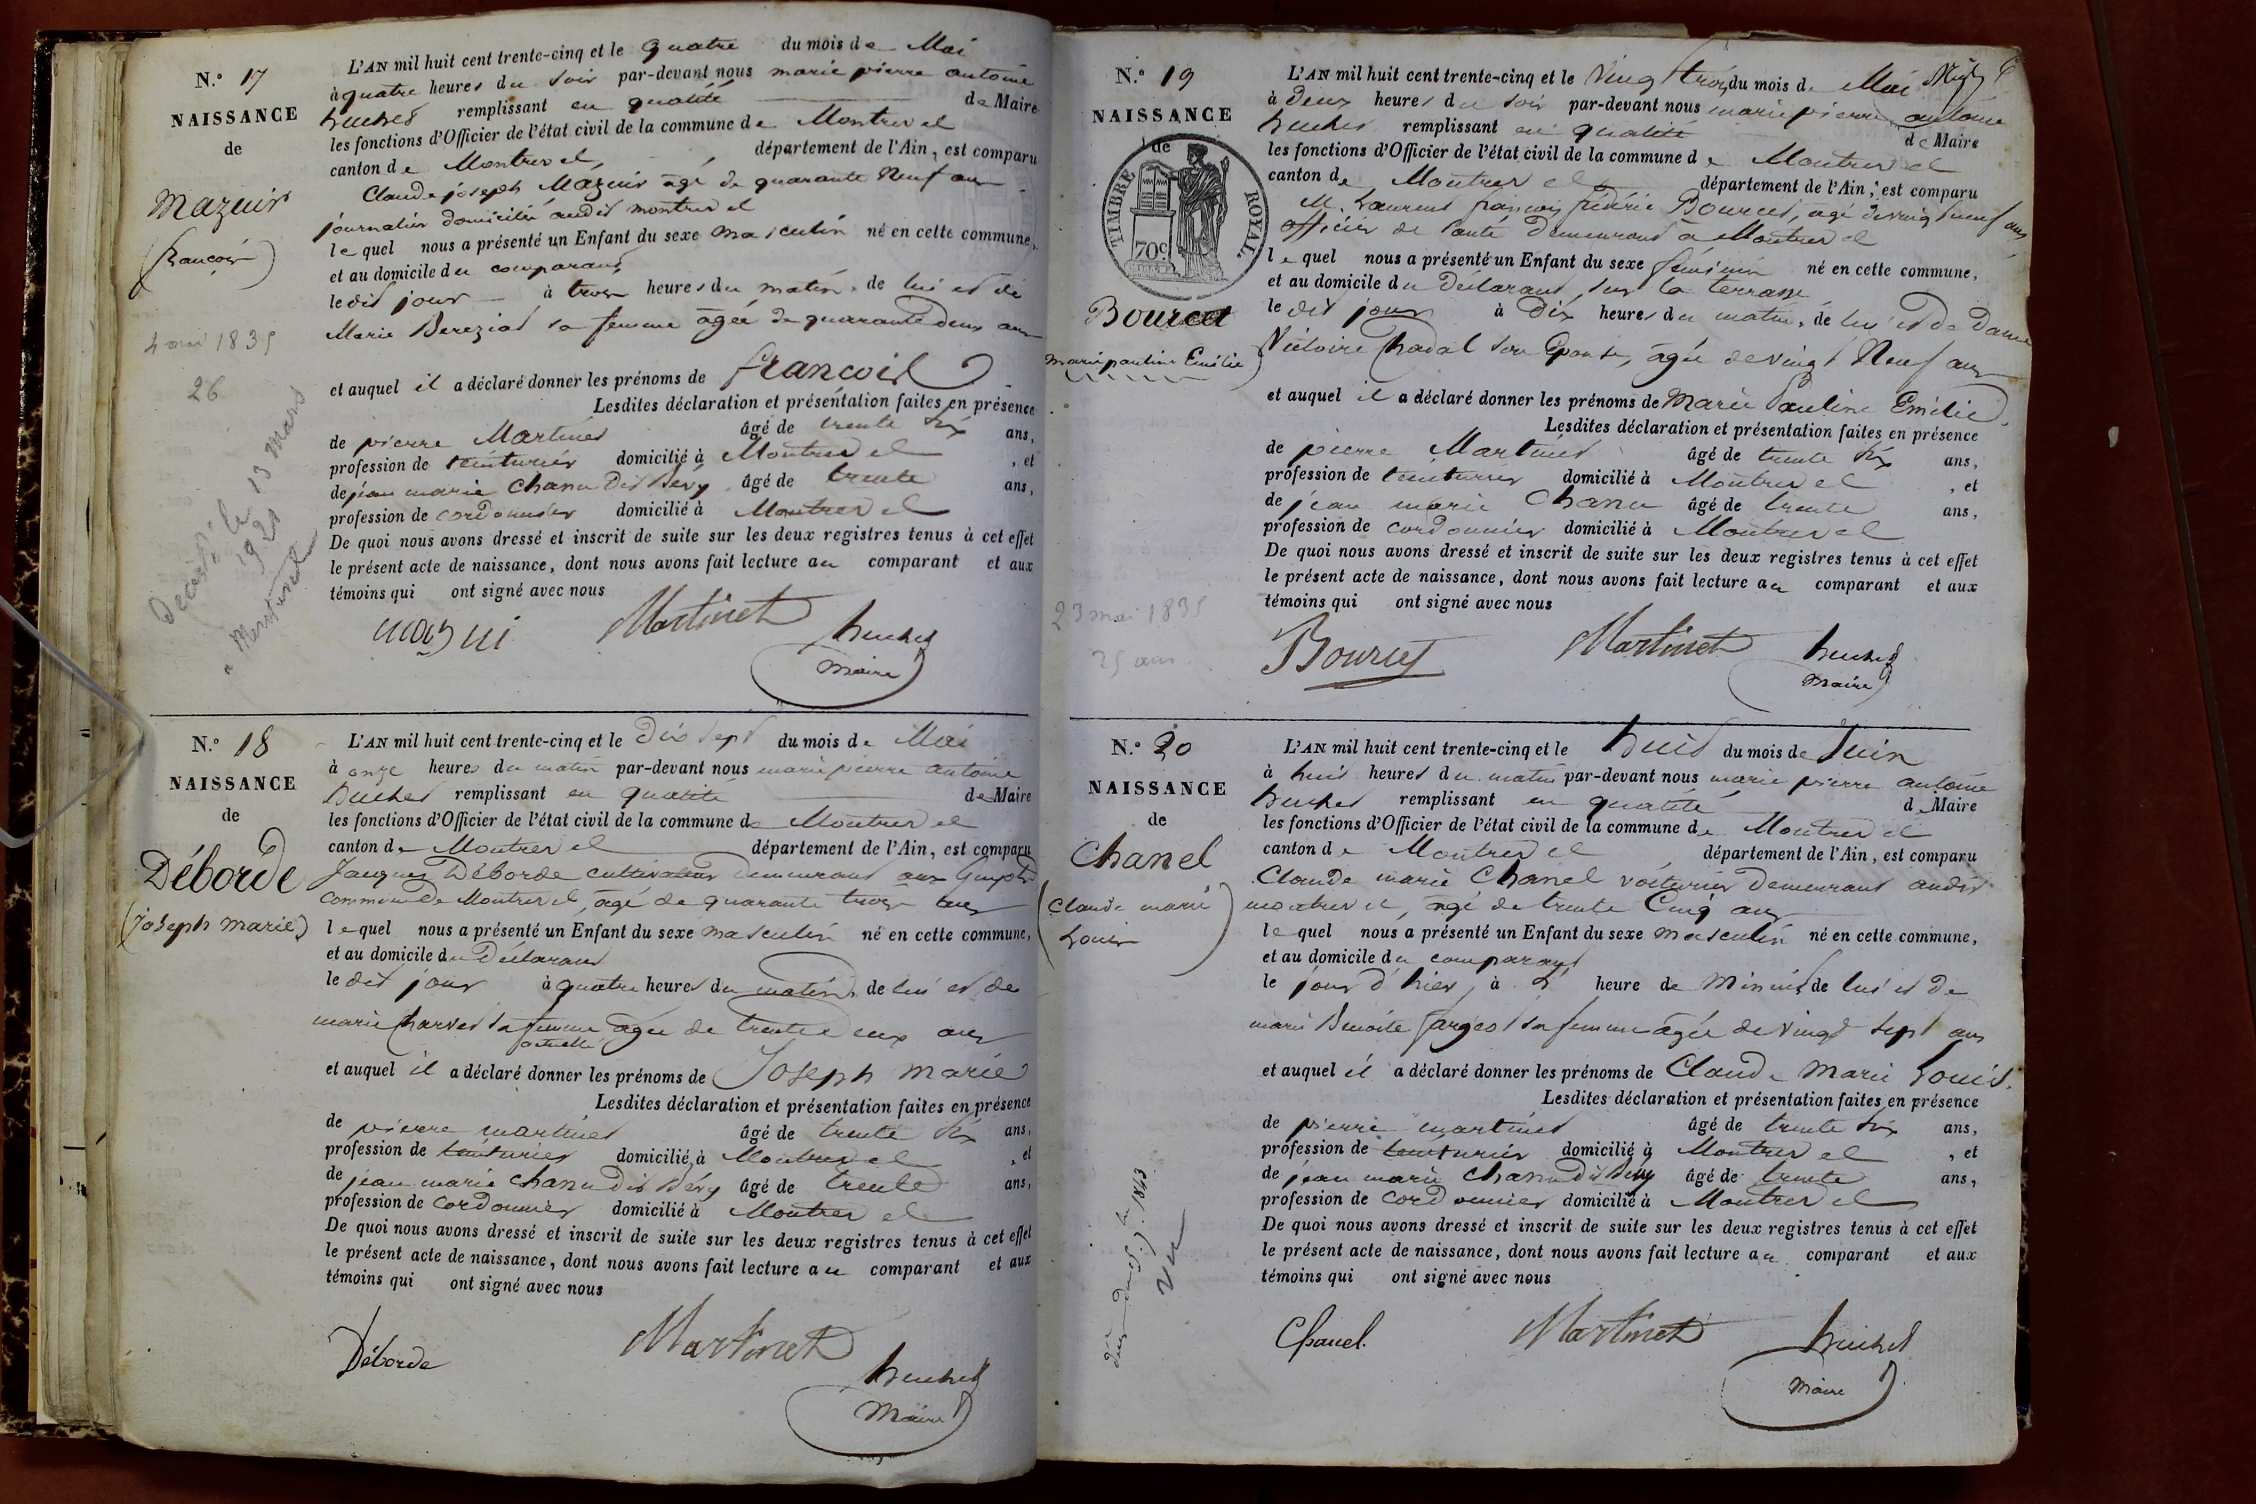 N.° 17
NAISSANCE
de
Mazuir
(françois)
4 mai 1835
26
Décédé le 13 mars
1921
a Montrevel
L'AN mil huit cent trente-cinq et le quatre du mois de Mai
à quatre heures du soir par-devant nous marie pierre antoine
huchet remplissant en qualité de Maire
les fonctions d'Officier de l'état civil de la commune de Montrevel
canton de Montrevel, département de l'Ain, est comparu
Claude joseph Mazuir âgé de quarante Neuf ans
journalier domicilié audit montrevel
lequel nous a présenté un Enfant du sexe masculin né en cette commune,
et au domicile du comparant
ledit jour à trois heures du matin, de lui et de
Marie Bereziat sa femme âgée de quarante deux ans
et auquel il a déclaré donner les prénoms de françois
Lesdites déclaration et présentation faites en présence
de pierre Martinet âgé de trente six ans,
profession de teinturier domicilié à Montrevel, et
de jean marie Chanu dit Bévy âgé de trente ans,
profession de cordonnier domicilié à Montrevel
De quoi nous avons dressé et inscrit de suite sur les deux registres tenus à cet effet
le présent acte de naissance, dont nous avons fait lecture au comparant et aux
témoins qui ont signé avec nous
Martinet
huchet
Maire
N.° 18
NAISSANCE
de
Déborde
(joseph marie)
L'AN mil huit cent trente-cinq et le dix sept du mois de Mai
à onze heures du matin par-devant nous marie pierre antoine
huchet remplissant en qualité de Maire
les fonctions d'Officier de l'état civil de la commune de Montrevel
canton de Montrevel département de l'Ain, est comparu
Jacques Déborde cultivateur demeurant aux
commune de Montrevel, âgé de quarante trois ans
lequel nous a présenté un Enfant du sexe masculin né en cette commune,
et au domicile du Déclarant
ledit jour à quatre heures du matin, de lui et de
marie Charvet sa femme âgée de trente deux ans
actuelle
et auquel il a déclaré donner les prénoms de Joseph Marie
Lesdites déclaration et présentation faites en présence
de pierre martinet âgé de trente six ans,
profession de teinturier domicilié à Montrevel, et
de jean marie Chanu dit Bévy âgé de trente ans,
profession de cordonnier domicilié à Montrevel
De quoi nous avons dressé et inscrit de suite sur les deux registres tenus à cet effet
le présent acte de naissance, dont nous avons fait lecture au comparant et aux
témoins qui ont signé avec nous
Déborde
Martinet
huchet
Maire
N.° 19
NAISSANCE
de
TIMBRE ROYAL.
70c
Bourcet
marie pauline Emélie
23 mai 1835
25 ans
L'AN mil huit cent trente-cinq et le vingt trois du mois de Mai
à Deux heures du soir par-devant nous marie pierre antoine
huchet remplissant en qualité de Maire
les fonctions d'Officier de l'état civil de la commune de Montrevel
canton de Montrevel département de l'Ain, est comparu
M. Laurent françois fréderic Bourcet, âgé de vingt neuf ans
officier de santé Demeurant a Montrevel
lequel nous a présenté un Enfant du sexe féminin né en cette commune,
et au domicile du Déclarant, sur la terrasse
ledit jour à Dix heures du matin, de lui et de Dame
Victoire Chadal son Epouse, âgée de vingt Neuf ans
et auquel il a déclaré donner les prénoms de Marie Pauline Emélie
Lesdites déclaration et présentation faites en présence
de pierre Martinet âgé de trente six ans,
profession de teinturier domicilié à Montrevel, et
de jean marie Chanu âgé de trente ans,
profession de cordonnier domicilié à Montrevel
De quoi nous avons dressé et inscrit de suite sur les deux registres tenus à cet effet
le présent acte de naissance, dont nous avons fait lecture au comparant et aux
témoins qui ont signé avec nous
Bourcet
Martinet
huchet
Maire
N.° 20
NAISSANCE
de
Chanel
(Claude marie
Louis)
1843
L'AN mil huit cent trente-cinq et le huit du mois de Juin
à huit heures du matin par-devant nous marie pierre antoine
huchet remplissant en qualité de Maire
les fonctions d'Officier de l'état civil de la commune de Montrevel
canton de Montrevel département de l'Ain, est comparu
Claude marie Chanel voiturier Demeurant audit
montrevel, âgé de trente Cinq ans
lequel nous a présenté un Enfant du sexe masculin né en cette commune,
et au domicile du comparant
le jour d'hier, à heure de Minuit, de lui et de
marie Benoite fargeot sa femme âgée de vingt sept ans
et auquel il a déclaré donner les prénoms de Claude Marie Louis.
Lesdites déclaration et présentation faites en présence
de pierre martinet âgé de trente six ans,
profession de teinturier domicilié à Montrevel, et
de jean marie Chanu dit Bévy âgé de trente ans,
profession de cordonnier domicilié à Montrevel
De quoi nous avons dressé et inscrit de suite sur les deux registres tenus à cet effet
le présent acte de naissance, dont nous avons fait lecture au comparant et aux
témoins qui ont signé avec nous
Chanel.
Martinet
huchet
Maire